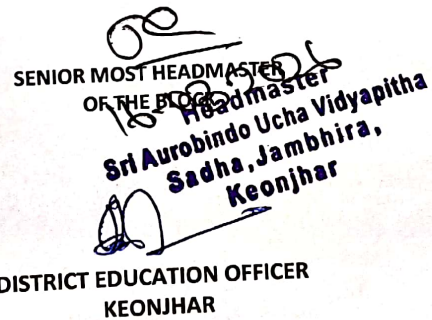 SENIOR MOST HEADMASTER
OF THE BLOCK
Headmaster
Sri Aurobindo Ucha Vidyapitha
Sadha, Jambhira,
Keonjhar
DISTRICT EDUCATION OFFICER
KEONJHAR